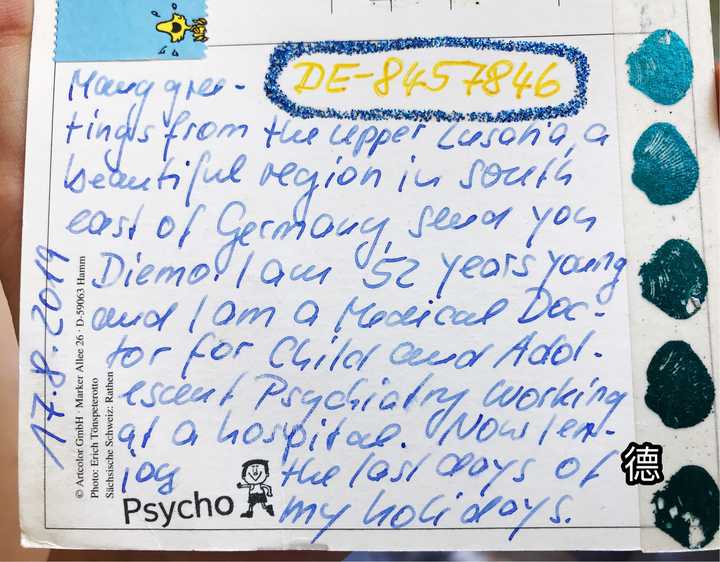 DE-8457846
Many gree-
tings from the upper Lusatia, a
beautiful region in south
east of Germany, send you
Diemo. I am 52 years young
and I am a Medical Doc-
tor for Child and Adol-
escent Psychiatry working
at a hospital. Now I en-
joy the last days of
my holidays.
17.8.2019
© Articolor GmbH · Marker Allee 26 · D-59063 Hamm
Photo: Erich Tönspeterotto
Sächsische Schweiz: Rathen
Psycho
德